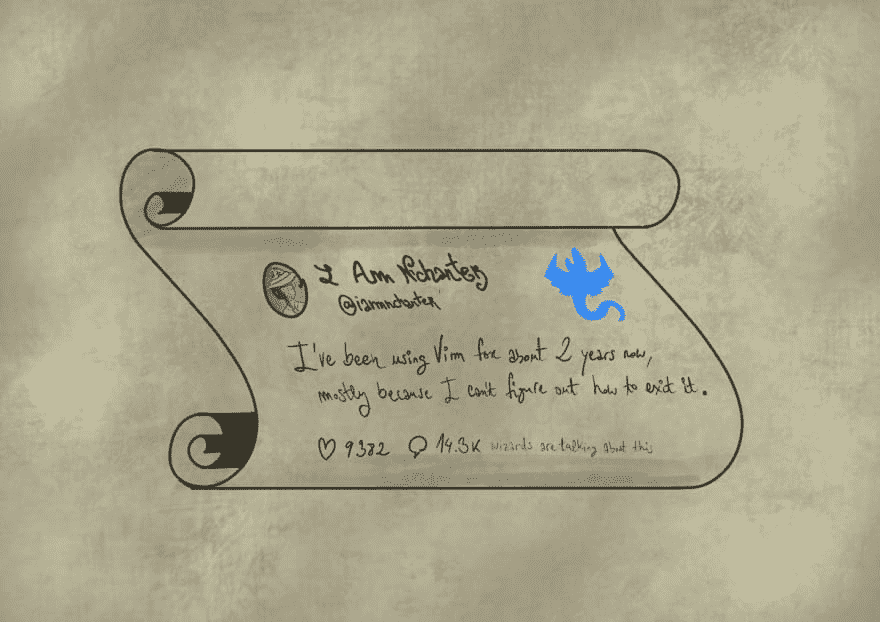 I Am Nchanter
@iamnchanter
I've been using Vim for about 2 years now,
mostly because I can't figure out how to exit it.
9382 14.3K wizards are talking about this